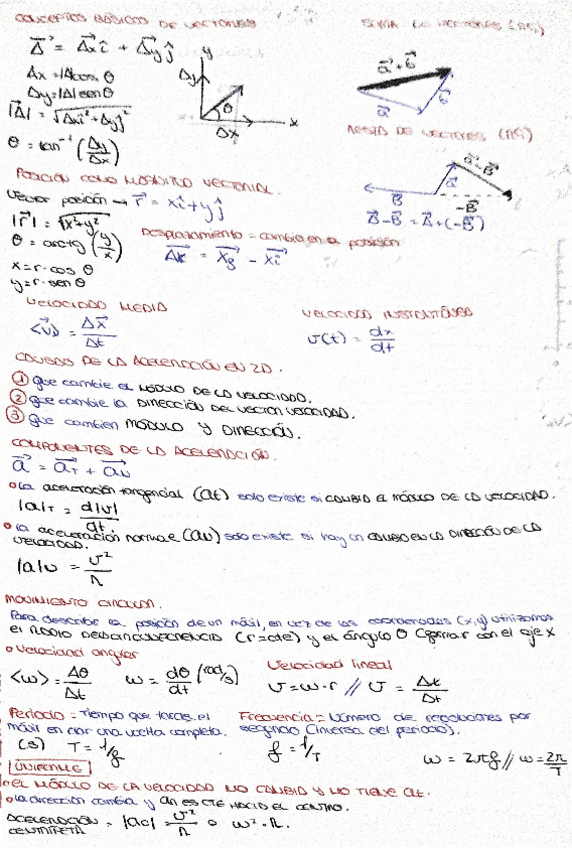 CONCEPTOS BÁSICOS DE VECTORES
A⃗ = A⃗x î + A⃗y ĵ
Ax = |A|cos θ
Ay = |A|sen θ
|A⃗| = √Ax² + Ay²
θ = tan⁻¹ (Ay/Ax)
Ay
y
θ
Ax
x
SUMA DE VECTORES
a⃗ + b⃗
a⃗
b⃗
RESTA DE VECTORES
B⃗
a⃗
-B⃗
A⃗ - B⃗ = A⃗ + (-B⃗)
POSICIÓN COMO MAGNITUD VECTORIAL.
Vector posición → r⃗ = xî + yĵ
|r⃗| = √x²+y²
θ = arctg (y/x)
x = r · cos θ
y = r · sen θ
Desplazamiento = cambio en la posición
Δx⃗ = X⃗f - X⃗i
VELOCIDAD MEDIA
<v⃗> = Δx⃗/Δt
VELOCIDAD INSTANTÁNEA
v(t) = dx/dt
CAUSAS DE LA ACELERACIÓN EN 2D.
① que cambie el MÓDULO DE LA VELOCIDAD.
② que cambie la DIRECCIÓN DEL VECTOR VELOCIDAD.
③ que cambien MÓDULO Y DIRECCIÓN.
COMPONENTES DE LA ACELERACIÓN.
a⃗ = a⃗T + a⃗N
La aceleración tangencial (at) solo existe si CAMBIA EL MÓDULO DE LA VELOCIDAD.
|a|T = d|v|/dt
la aceleración normal (aN) solo existe si hay un CAMBIO EN LA DIRECCIÓN DE LA
VELOCIDAD.
|a|N = v²/R
MOVIMIENTO CIRCULAR.
Para describir la posición de un móvil, en vez de las coordenadas (x,y) utilizamos
el RADIO DE LA CIRCUNFERENCIA (r=cte) y el ángulo θ con el eje X
Velocidad angular
<ω> = Δθ/Δt
ω = dθ/dt (rad/s)
Velocidad lineal
v = ω · r // v =
Periodo = Tiempo que tarda el
móvil en dar una vuelta completa.
(s) T = 1/f
Frecuencia = Número de revoluciones por
segundo (inversa del periodo).
f = 1/T
ω = 2πf // ω = 2π/T
UNIFORME
EL MÓDULO DE LA VELOCIDAD NO CAMBIA Y NO TIENE at.
la dirección cambia y an ES CTE HACIA EL CENTRO.
ACELERACIÓN = |ac| = v²/R o ω² · R.
CENTRÍPETA